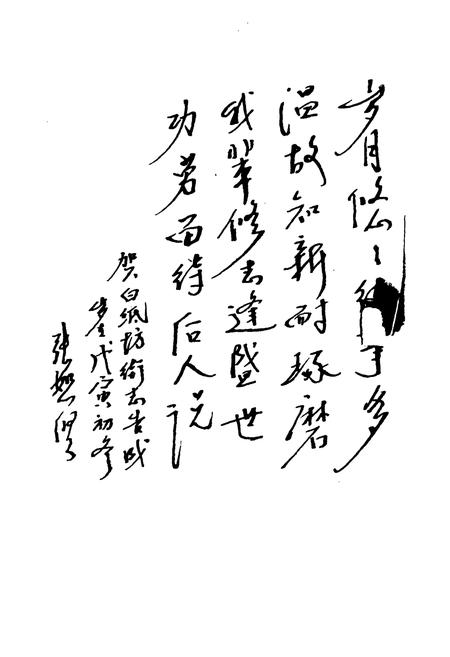 岁月悠々事多
温故知新耐琢磨
我辈修志逢盛世
功劳待后人说
贺白纸坊街志告成
岁在戊寅初冬
张